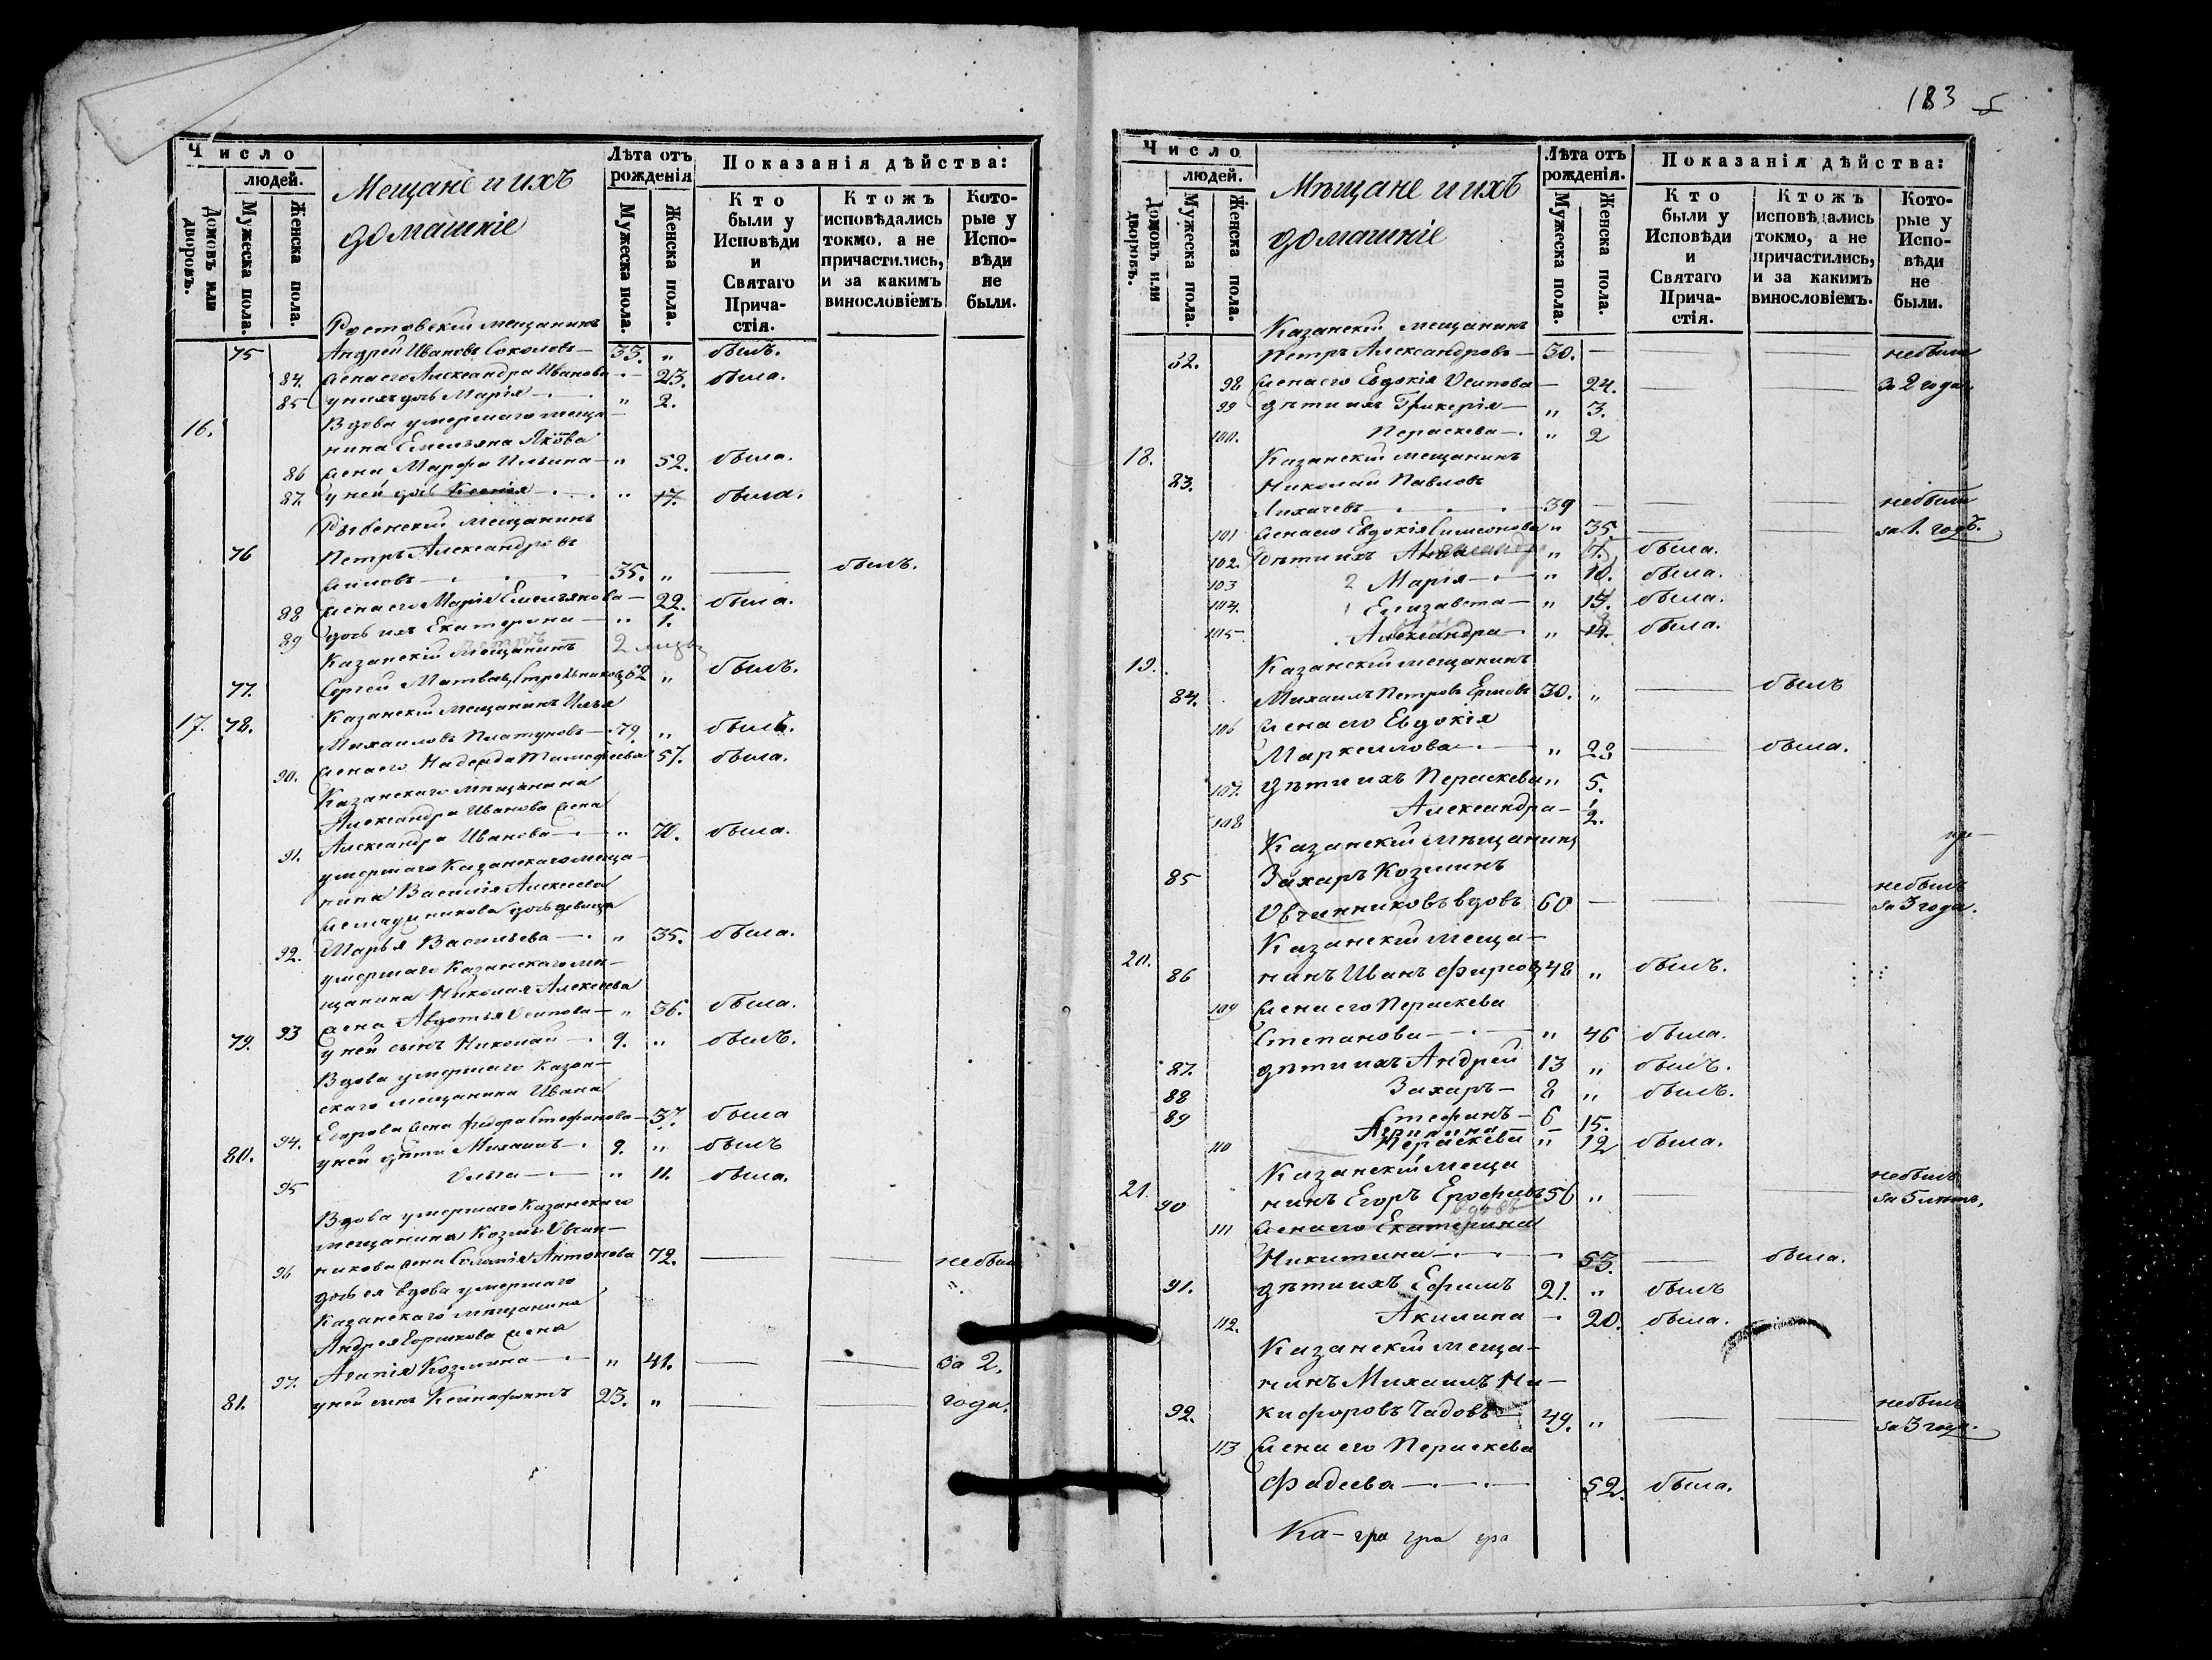 183
Число
людей.
Домовъ или дворовъ.
Мужеска пола.
Женска пола.
Мещане и ихъ
домашніе
Лѣта отъ рожденія
Мужеска пола.
Женска пола.
Показанія дѣйства:
Кто были у Исповѣди и Святаго Прича-стія.
Ктожъ исповѣдались токмо, а не причастились, и за какимъ винословіемъ
Кото-рые у Испо-вѣди не были.
Ростовскій мещанинъ
75 Андрей Ивановъ Соколовъ — 33. „ былъ.
84. жена его Александра Иванова — 23. была.
85 у нихъ дочь Марія — „ 2.
16. Вдова умершаго меща-
нина Емельяна Якова
86 жена Марфа Ильина — „ 52. была.
87. у ней дочь Ксенія — „ 17. была.
мещанинъ
76 Петръ Александровъ
35. „ — былъ.
88 жена его Марія Емельянова — 22. была.
89 дочь ихъ Екатерина — „ 1.
Казанскій мещанинъ
77. Сергей Матвеевъ Стрельниковъ 52 „ былъ.
Казанскій мещанинъ Илья
17. 78. Михаиловъ Платуновъ — 79. „ былъ.
90. жена его Надежда Тимофеева 57. была.
Казанскаго мещанина
Александра Иванова жена
91. Александра Иванова — „ 70. была.
умершаго Казанскаго меща-
нина Василія Алексеева
дочь девица
92. Марья Васильева — „ 35. была.
умершаго Казанскаго ме-
щанина Николая Алексеева
93 жена Авдотья Осипова — „ 36. была.
79. у ней сынъ Николай — 9. „ былъ.
Вдова умершаго Казан-
скаго мещанина Ивана
94. Егорова жена Федора Стефанова — 37. была
80. у ней дѣти Михаилъ — 9. „ былъ
95 Ольга — „ 11. была.
Вдова умершаго Казанскаго
мещанина Козмы Овчин-
96 никова жена Соломія Антонова 72. — — небыли
дочь ея вдова умершаго
Казанскаго мещанина
Андрея Горшкова жена
97. Агапія Козмина — „ 41. — — за 2.
81. у ней сынъ Ксенофонтъ 23. „ — — года.
Число
людей.
Домовъ или дворовъ.
Мужеска пола.
Женска пола.
Мѣщане и ихъ
домашніе
Лѣта отъ рожденія.
Мужеска пола.
Женска пола.
Показанія дѣйства:
Кто были у Исповѣди и Святаго Прича-стія.
Ктожъ исповѣдались токмо, а не причастились, и за какимъ винословіемъ.
Кото-рые у Испо-вѣди не были.
Казанскій мещанинъ
82. Петръ Александровъ — 30. — — — небыли
98 жена его Евдокія Осипова — 24. — — за 2 года.
99 дѣти ихъ Гликерія — „ 3.
100. Пераскева — „ 2
18. Казанскій мещанинъ
83. Николай Павловъ
Лихачевъ — 39 — — — небыли
101 жена его Евдокія Симеонова „ 35 — — за 1. годъ.
102. Дѣти ихъ Анна „ 17. была.
103 2 Марія — „ 10. была.
104. 1 Елизавета — „ 15. была.
105 Александра — „ 14. была.
19. Казанскій мещанинъ
84. Михаилъ Петровъ Ермовъ 30. „ — былъ
106 жена его Евдокія
Маркеллова — „ 23 — была.
107. дѣти ихъ Пераскева „ 5.
108 Александра — 1/2.
Казанскій мѣщанинъ
85 Захаръ Козминъ небылъ
Овчинниковъ вдовъ 60 — — — за 3 года.
20. Казанскій меща-
86 нинъ Иванъ Фирсовъ 48 „ былъ.
109 жена его Пераскева
Степанова — „ 46 была.
87. дѣти ихъ Андрей 13 „ былъ.
88 Захаръ — 8 „ былъ.
89 Стефанъ — 6
Агрипина — 15.
110 Пераскева „ 12 была.
21. Казанскій меща небылъ
90 нинъ Егоръ Ерофеевъ 56 „ — — за 5 летъ.
вдовъ
111 жена его Екатерина
Никитина — 53. — была.
91. дѣти ихъ Ефимъ 21. „ былъ
112. Акилина — 20. была.
Казанскій меща-
нинъ Михаилъ Ни-
92. кифоровъ Чадовъ — 49. „ — — небылъ за 3 года.
113 жена его Пераскева
Фадеева — 52. была.
Ка- гра гра гра